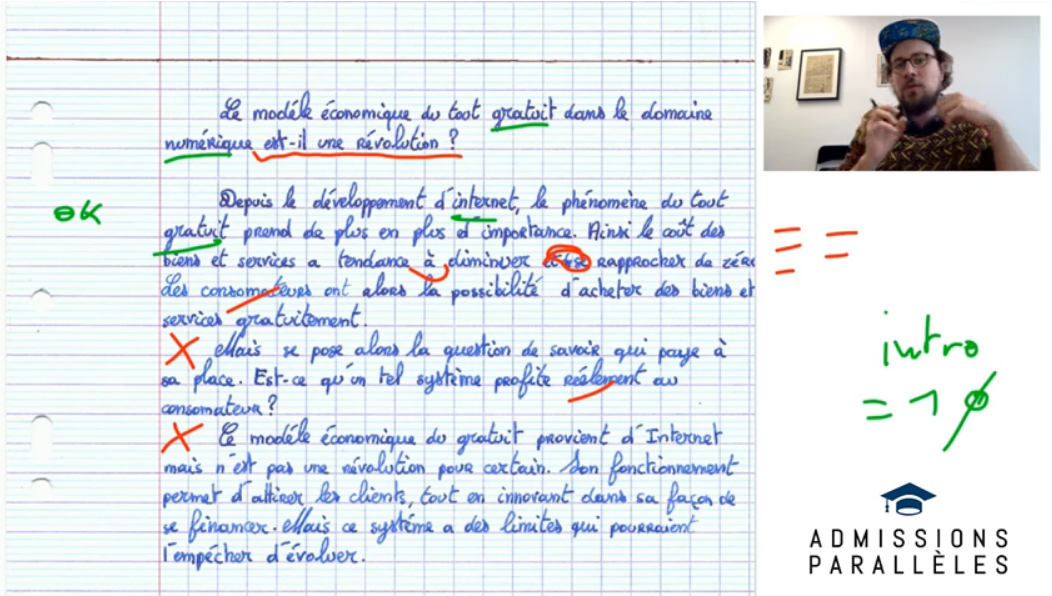 Le modéle économique du tout gratuit dans le domaine
numérique est-il une révolution ?
Depuis le développement d'internet, le phénomène du tout
gratuit prend de plus en plus d'importance. Ainsi le coût des
biens et services a tendance à diminuer et se rapprocher de zéro
Les consomateurs ont alors la possibilité d'acheter des biens et
services gratuitement.
Mais se pose alors la question de savoir qui paye à
sa place. Est-ce qu'un tel système profite réélement au
consomateur ?
Ce modéle économique du gratuit provient d'Internet
mais n'est pas une révolution pour certain. Son fonctionnement
permet d'attirer les clients, tout en innovant dans sa façon de
se financer. Mais ce systéme a des limites qui pourraient
l'empécher d'évoluer.
OK
intro
= 1
ADMISSIONS
PARALLÈLES